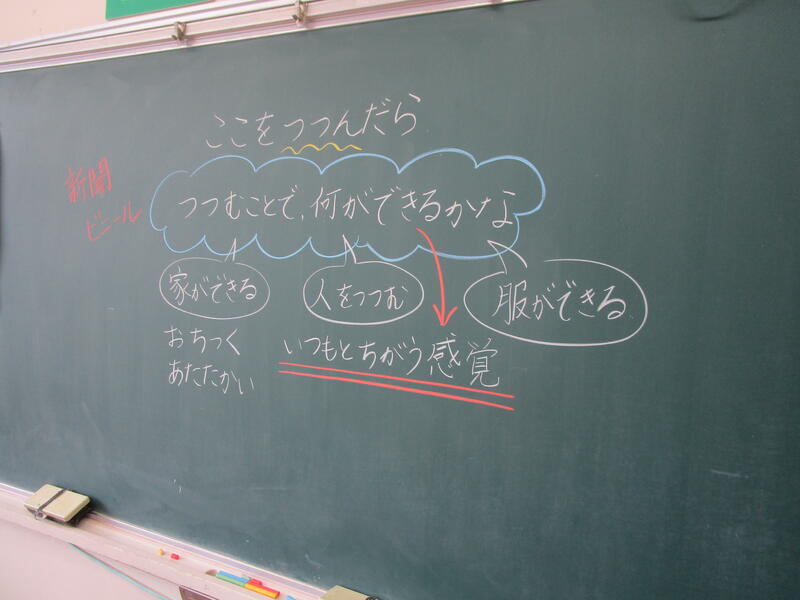 ここをつつんだら
新聞
ビニール
つつむことで、何ができるかな
家ができる
人をつつむ
服ができる
おちつく
あたたかい
いつもとちがう感覚